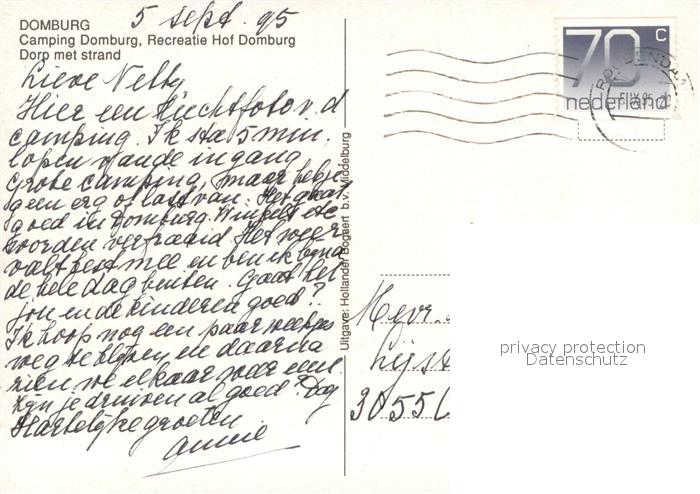 5 sept. 95
DOMBURG
Camping Domburg, Recreatie Hof Domburg
Dorp met strand
Lieve Netty
Hier een luchtfoto v. d
camping. Ik sta 5 min.
lopen v/ande ingang,
Grote camping, maar heb er
geen erg of last van. Het gaat
goed in Domburg. Winkels etc
worden verfraaid. Het weer
valt best mee en ben ik bijna
de hele dag buiten. Gaat het
jou en de kinderen goed?
Ik hoop nog een paar weekjes
weg te blijven, en daarna
zien we elkaar weer eens.
Zijn je druiven al goed? Dag
Hartelijke groeten
Annie
Uitgave: Hollander Bogaert b.v. Middelburg
70 c
nederland
ROOSENDAAL
Mevr.
Lijst
3055
privacy protection
Datenschutz